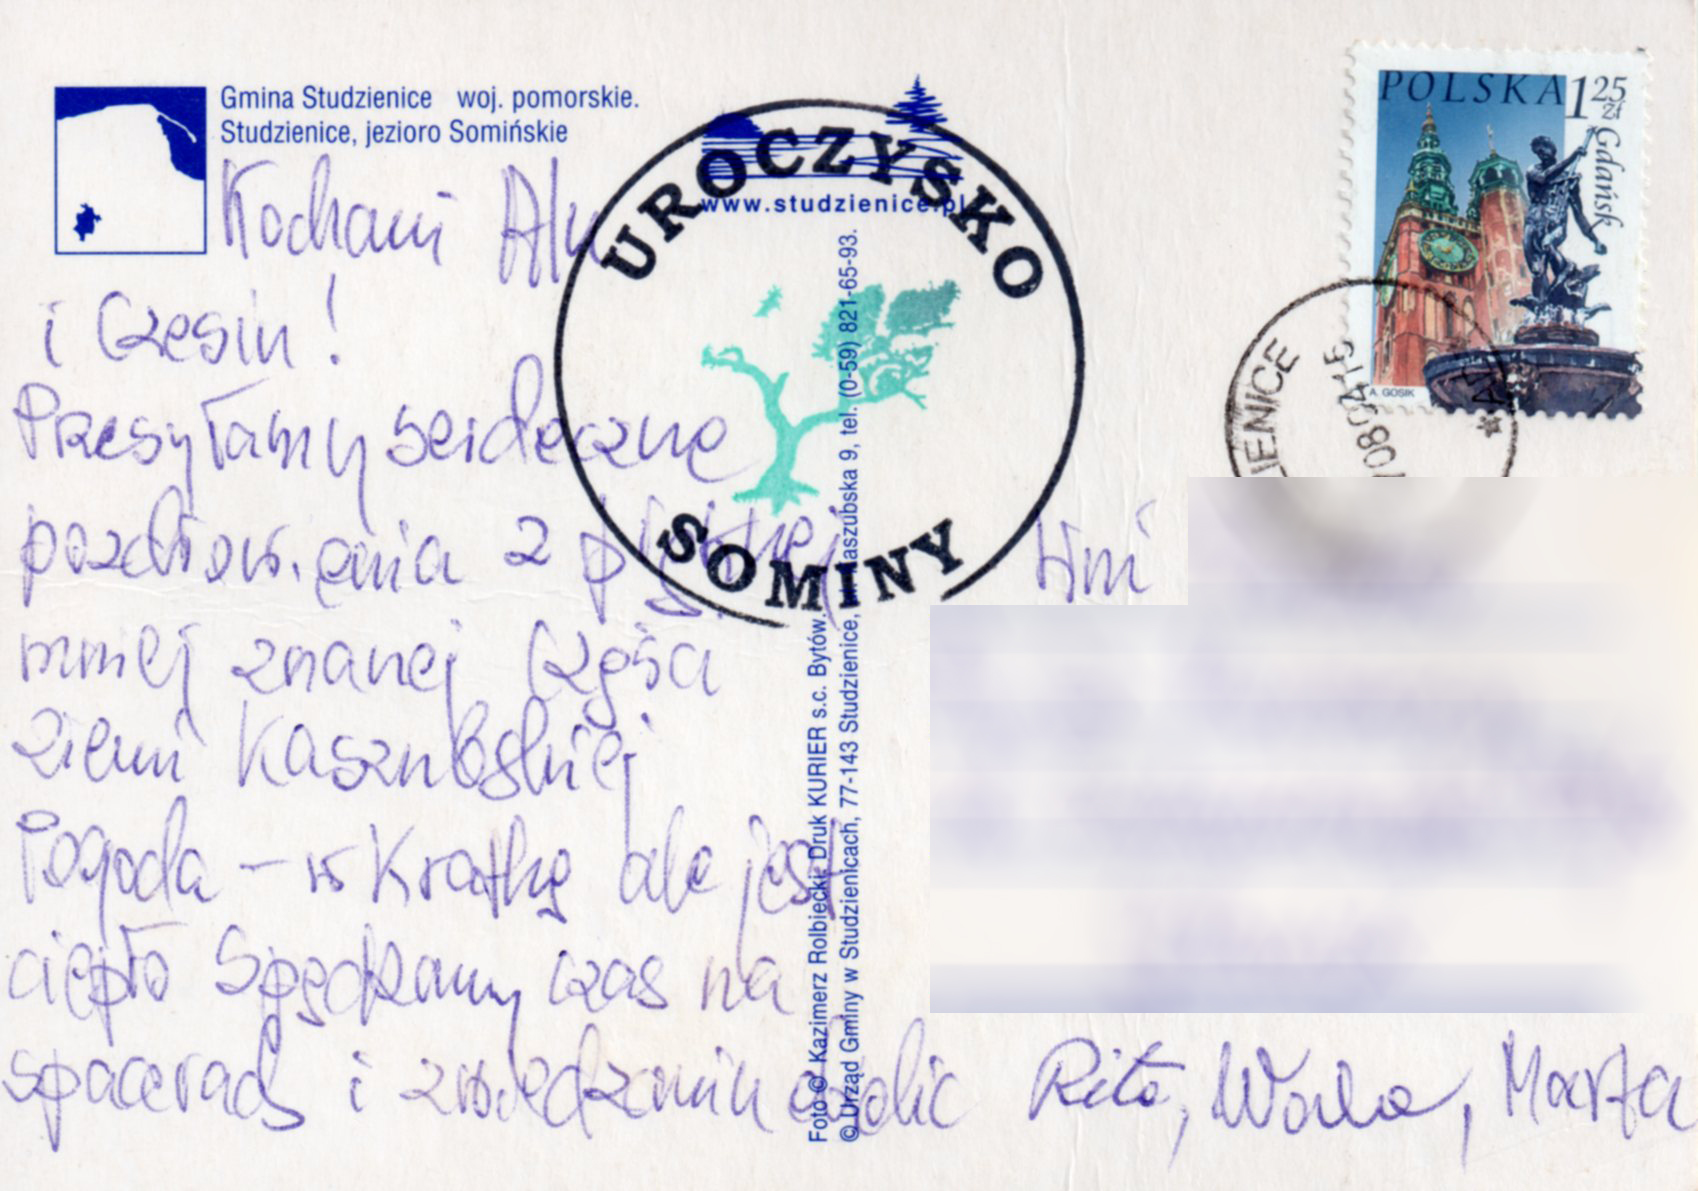 Gmina Studzienice woj. pomorskie.
Studzienice, jezioro Somińskie
www.studzienice.pl
UROCZYSKO
SOMINY
POLSKA 1 25 zł
Gdańsk
A. GOSIK
IENICE
Kochani Alu
i Czesiu!
Przesyłamy serdeczne
pozdrowienia z pięknej
mniej znanej części
ziemi Kaszubskiej
Pogoda – w Kratkę ale jest
ciepło Spędzamy czas na
spacerach i zwiedzaniu okolic
Rita, Marta
Foto © Kazimierz Rolbiecki, Druk KURIER s.c. Bytów.
© Urząd Gminy w Studzienicach, 77-143 Studzienice, Kaszubska 9, tel. (0-59) 821-65-93.